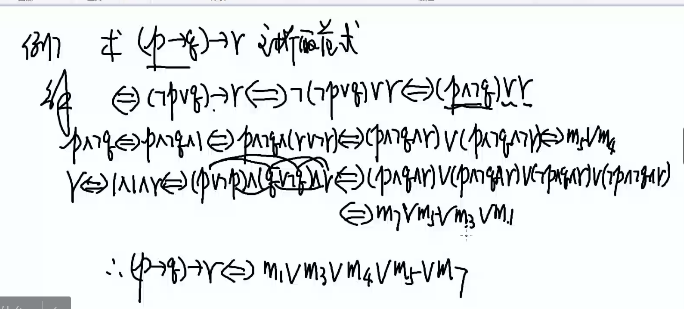 例7 求 (p→q)→r 主析取范式
解 ⇔(¬p∨q)→r⇔¬(¬p∨q)∨r⇔(p∧¬q)∨r
p∧¬q⇔p∧¬q∧1⇔p∧¬q∧(r∨¬r)⇔(p∧¬q∧r)∨(p∧¬q∧¬r)⇔m5∨m4
r⇔1∧1∧r⇔(p∨¬p)∧(q∨¬q)∧r⇔(p∧q∧r)∨(p∧¬q∧r)∨(¬p∧q∧r)∨(¬p∧¬q∧r)
⇔m7∨m5∨m3∨m1
∴(p→q)→r⇔m1∨m3∨m4∨m5∨m7